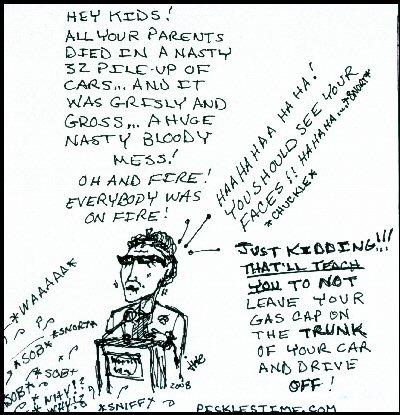 HEY KIDS!
ALL YOUR PARENTS
DIED IN A NASTY
32 PILE-UP OF
CARS... AND IT
WAS GRISLY AND
GROSS... A HUGE
NASTY BLOODY
MESS!
OH AND FIRE!
EVERYBODY WAS
ON FIRE!
HAA HA HAA HA HA!
YOU SHOULD SEE YOUR
FACES!! HA HA HA... *SNORT*
*CHUCKLE*
JUST KIDDING!!!
THAT'LL TEACH
YOU TO NOT
LEAVE YOUR
GAS CAP ON
THE TRUNK
OF YOUR CAR
AND DRIVE
OFF!
*WAAAAA*
*SNORT*
*SOB*
*SOB*
*SOB*
WHY!?
WHY!?
*SNIFF*
2008
PICKLESTIME.COM